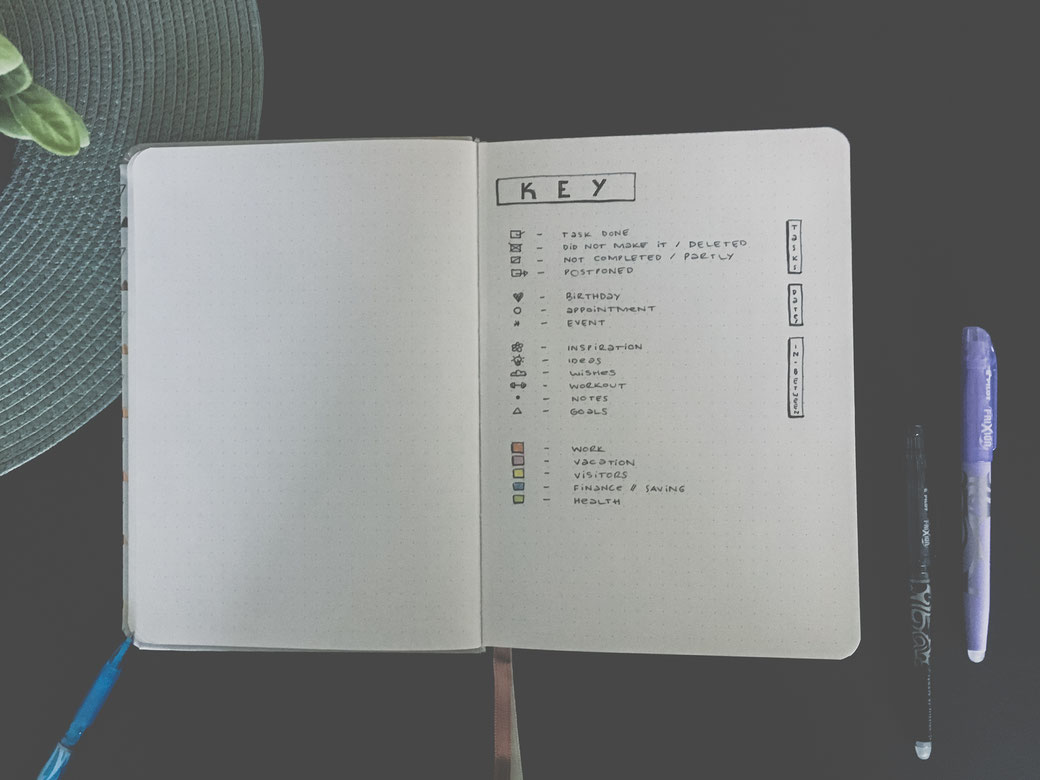 KEY
- TASK DONE
- DID NOT MAKE IT / DELETED
- NOT COMPLETED / PARTLY
- POSTPONED
TASKS
- BIRTHDAY
- APPOINTMENT
- EVENT
DATES
- INSPIRATION
- IDEAS
- WISHES
- WORKOUT
- NOTES
- GOALS
IN-BETWEEN
- WORK
- VACATION
- VISITORS
- FINANCE // SAVING
- HEALTH
PILOT FRIXION
PILOT FRIXION